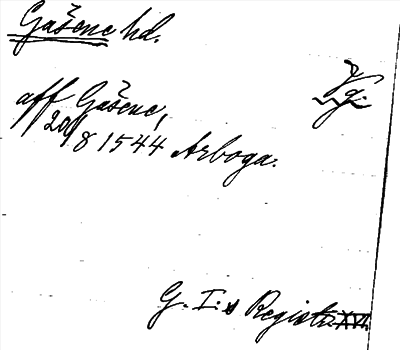 Gåsene hd.
Vg.
aff Gåsene,
20/8 1544 Arboga.
G. I:s Registr. XVI.